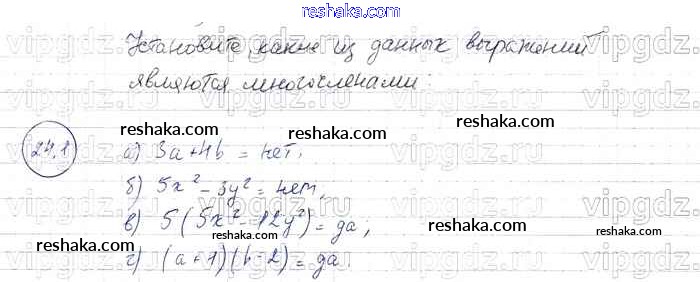 reshaka.com
Установите, какие из данных выражений
являются многочленами:
24.1
а) 3a+4b = нет,
б) 5x² - 3y² = нет,
в) 5(5x² - 12y²) = да;
г) (a+1)(b-2) = да.
vipgdz.ru
vipgdz.ru
vipgdz.ru
reshaka.com
reshaka.com
reshaka.com
reshaka.com
reshaka.com
reshaka.com
reshaka.com